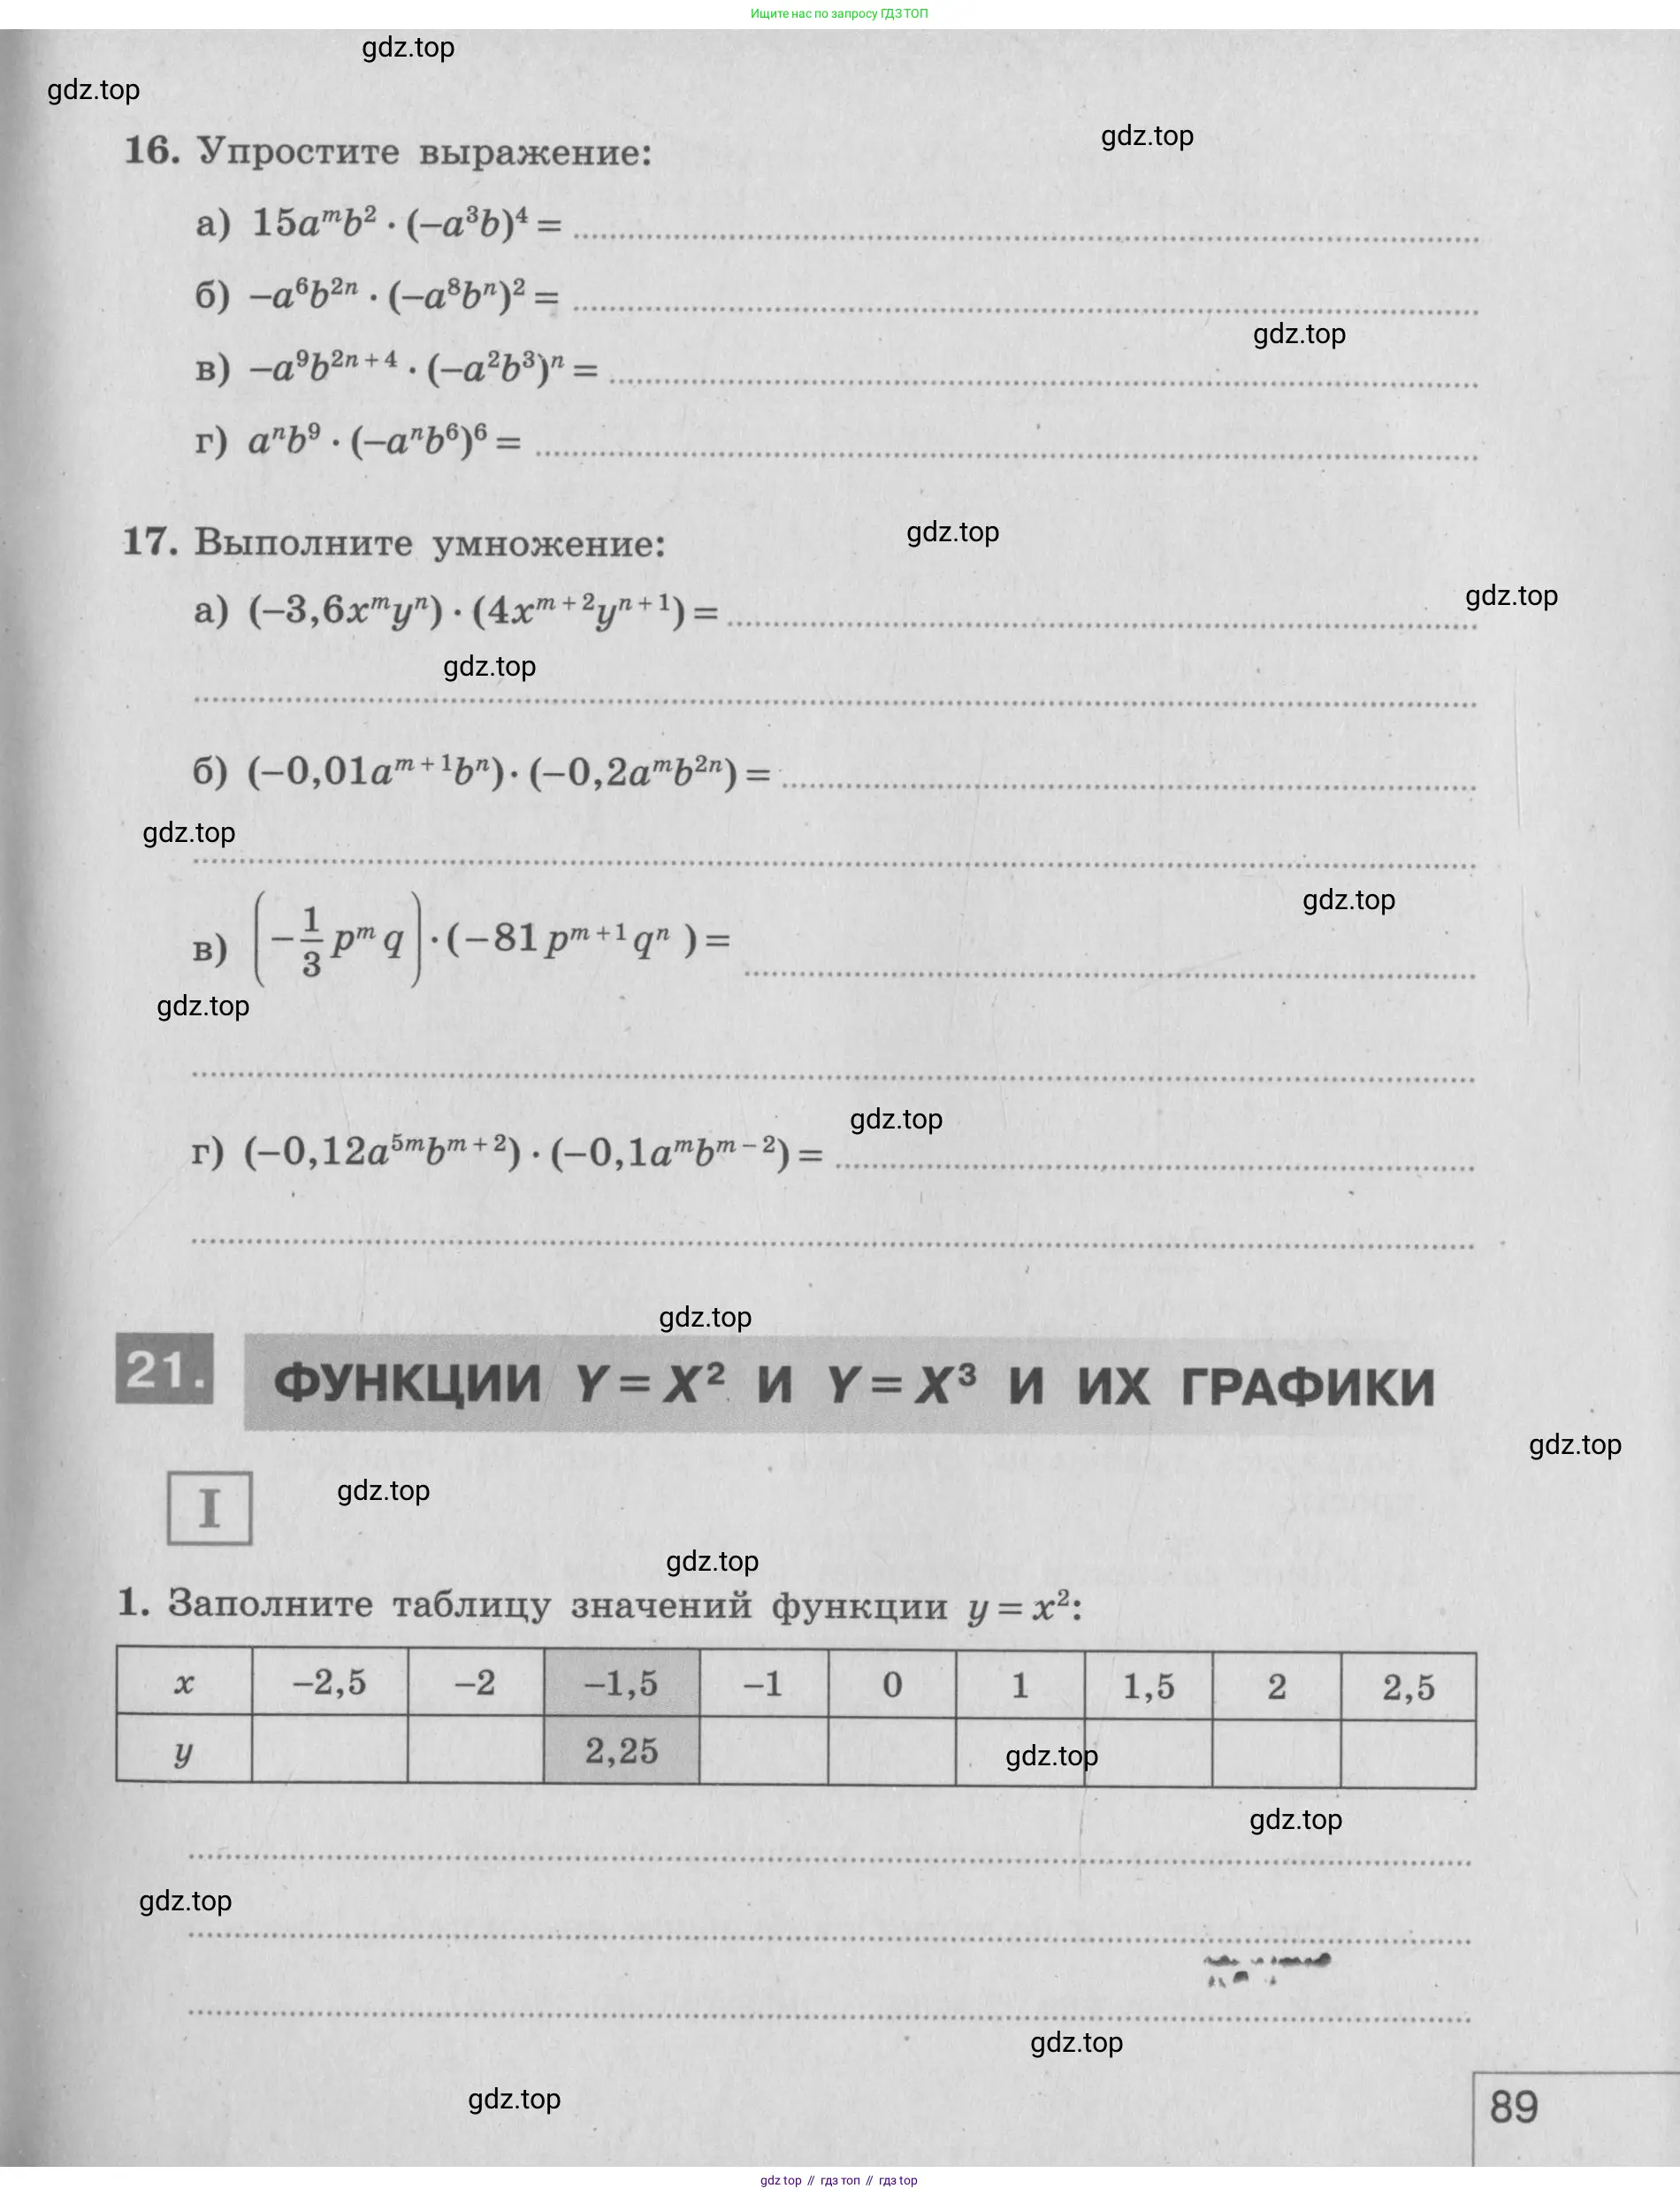 Ищите нас по запросу ГДЗ ТОП
gdz.top
gdz.top
gdz.top
16. Упростите выражение:
а) 15aᵐb² · (–a³b)⁴ =
б) –a⁶b²ⁿ · (–a⁸bⁿ)² =
gdz.top
в) –a⁹b²ⁿ⁺⁴ · (–a²b³)ⁿ =
г) aⁿb⁹ · (–aⁿb⁶)⁶ =
17. Выполните умножение:
gdz.top
gdz.top
а) (–3,6xᵐyⁿ) · (4xᵐ⁺²yⁿ⁺¹) =
gdz.top
б) (–0,01aᵐ⁺¹bⁿ) · (–0,2aᵐb²ⁿ) =
gdz.top
gdz.top
в) (–1/3 pᵐ q) · (–81 pᵐ⁺¹ qⁿ ) =
gdz.top
gdz.top
г) (–0,12a⁵ᵐbᵐ⁺²) · (–0,1aᵐbᵐ⁻²) =
gdz.top
21. ФУНКЦИИ Y = X² И Y = X³ И ИХ ГРАФИКИ
gdz.top
I
gdz.top
gdz.top
1. Заполните таблицу значений функции y = x²:
x –2,5 –2 –1,5 –1 0 1 1,5 2 2,5
y 2,25
gdz.top
gdz.top
gdz.top
gdz.top
gdz.top
89
gdz top // гдз топ // гдз top